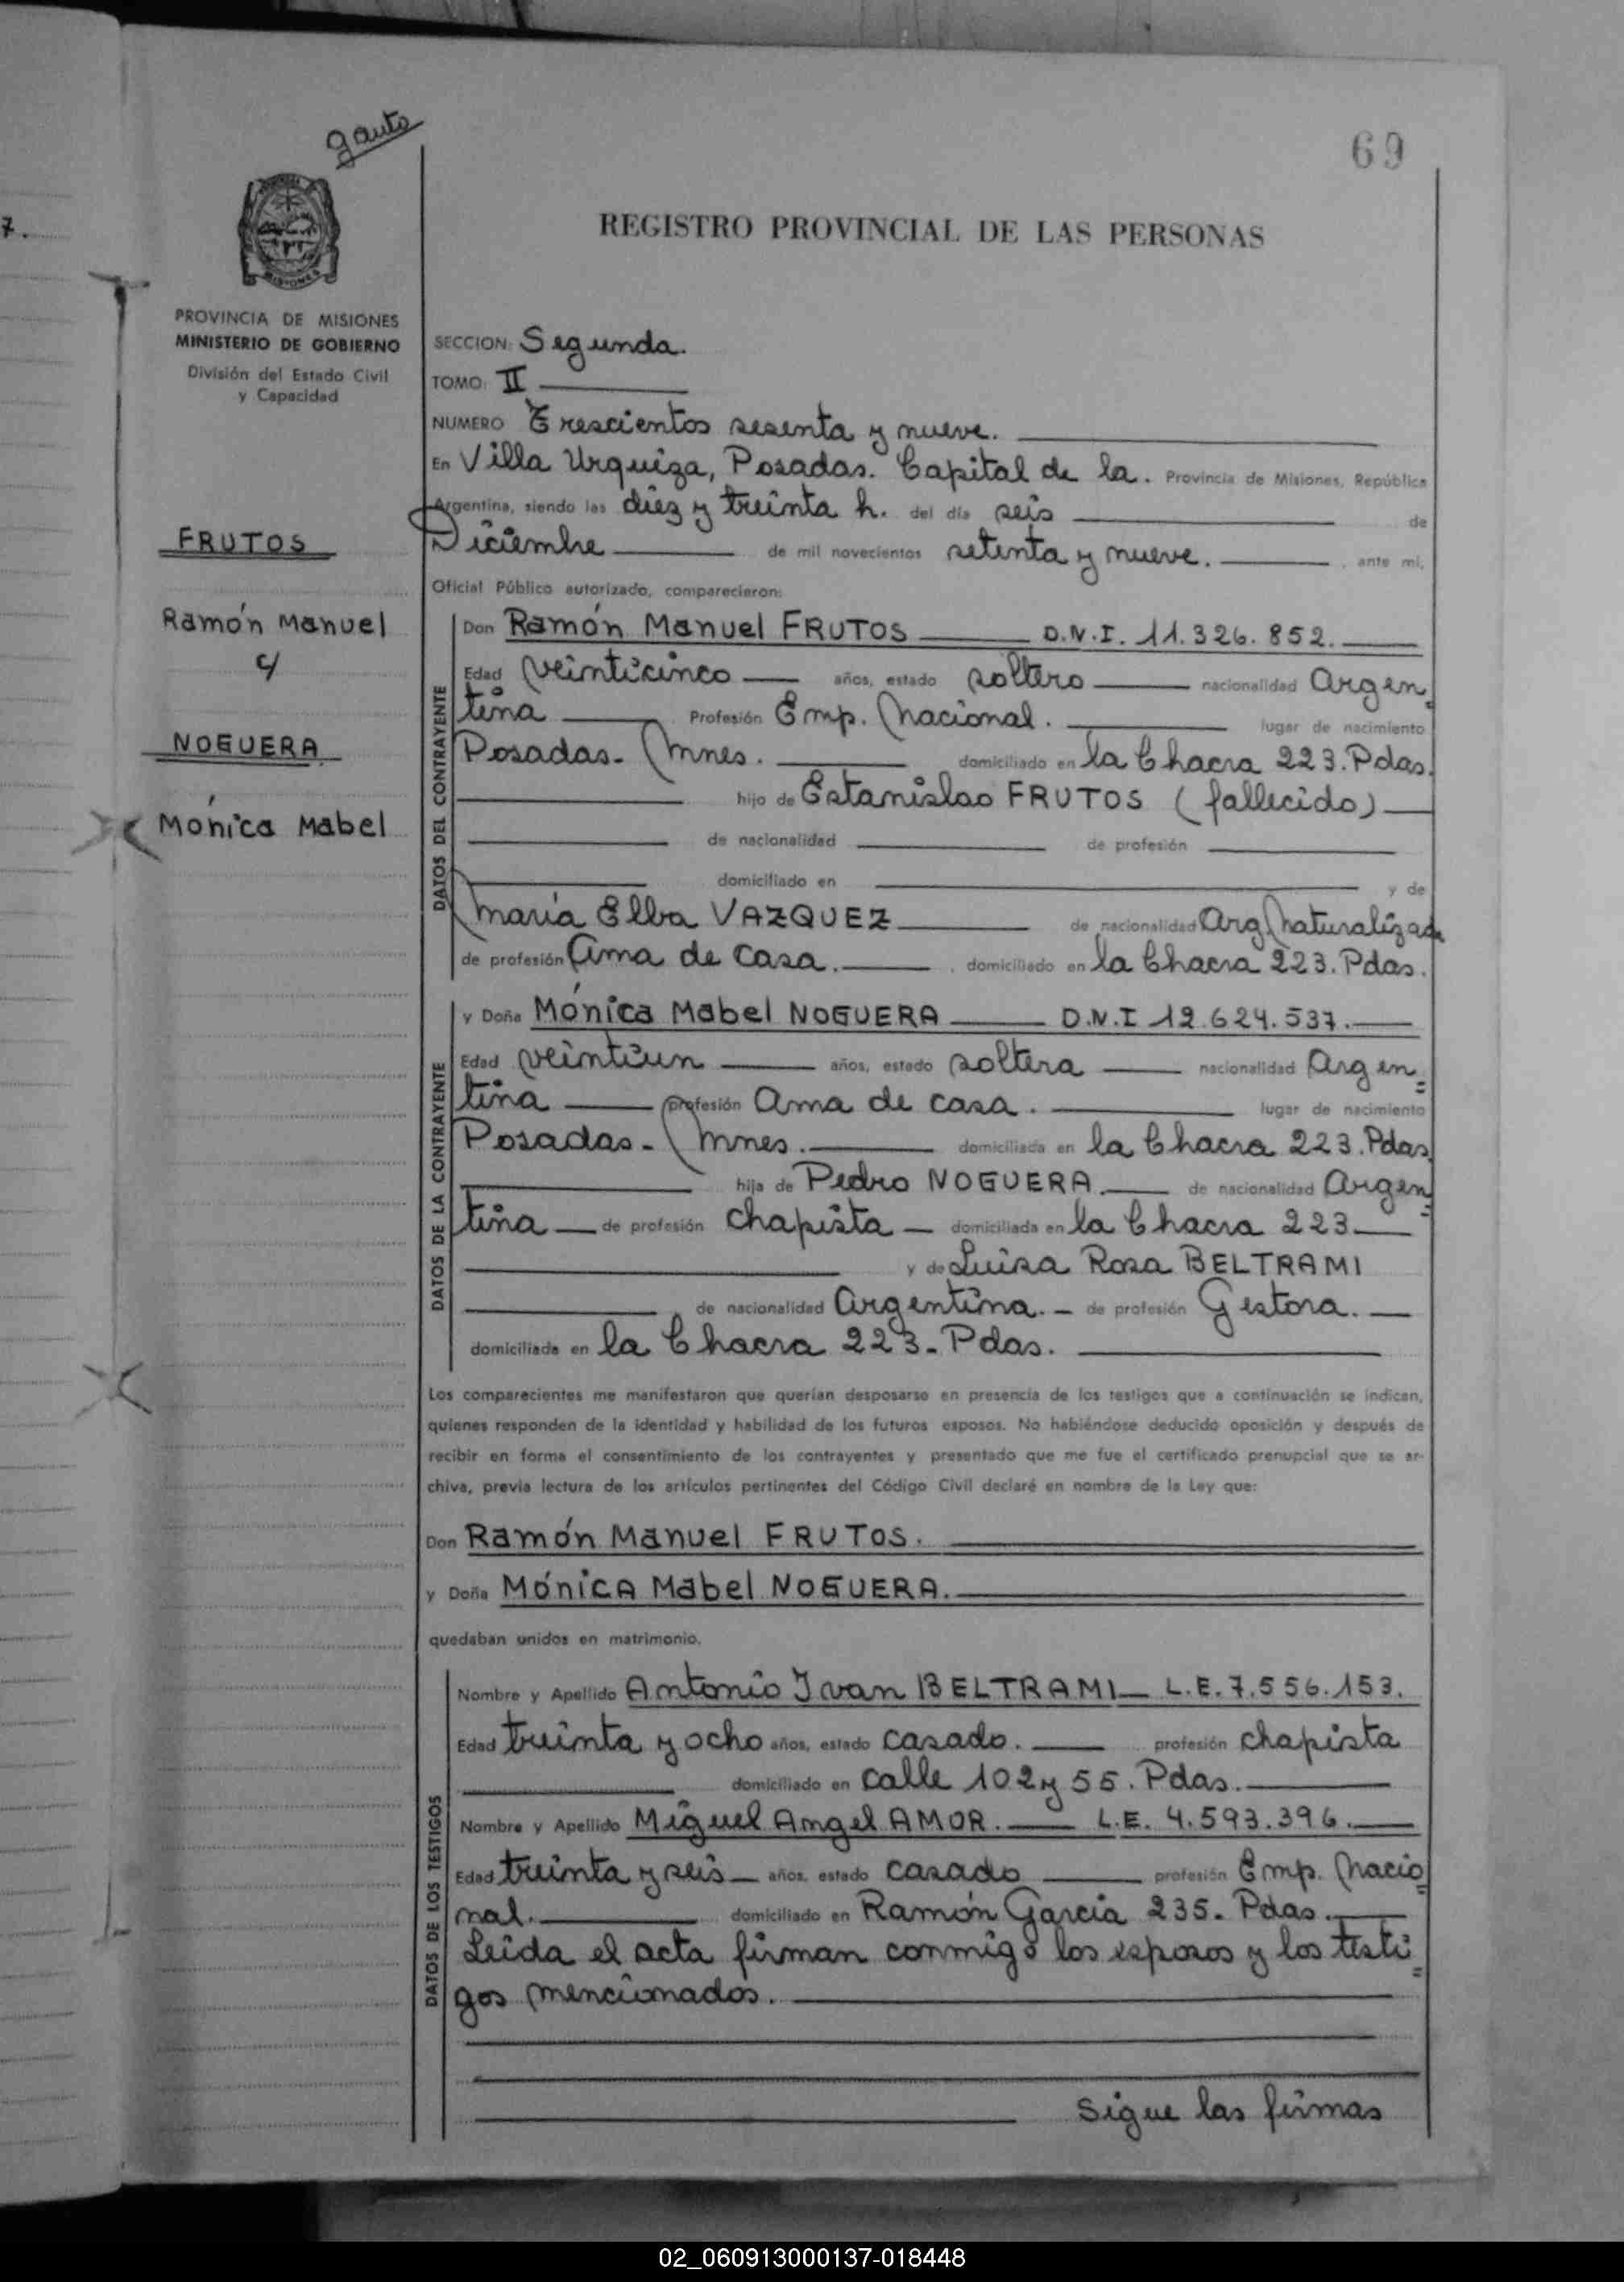 gauto
69
7.
REGISTRO PROVINCIAL DE LAS PERSONAS
MISIONES
PROVINCIA DE MISIONES
MINISTERIO DE GOBIERNO
División del Estado Civil
y Capacidad
FRUTOS
Ramón Manuel
c/
NOGUERA
Mónica Mabel
SECCION: Segunda.
TOMO: II
NUMERO Trescientos sesenta y nueve.
En Villa Urquiza, Posadas. Capital de la. Provincia de Misiones, República
Argentina, siendo las diez y treinta h. del día seis de
Diciembre de mil novecientos setenta y nueve. , ante mi,
Oficial Público autorizado, comparecieron:
DATOS DEL CONTRAYENTE
Don Ramón Manuel FRUTOS D.N.I. 11.326.852.
Edad veinticinco años, estado soltero nacionalidad Argen
tina Profesión Emp. Nacional. lugar de nacimiento
Posadas - Mnes. domiciliado en la Chacra 223. Pdas.
hijo de Estanislao FRUTOS (fallecido)
de nacionalidad de profesión
domiciliado en y de
María Elba VAZQUEZ de nacionalidad Arg. Naturalizada
de profesión Ama de Casa. , domiciliado en la Chacra 223. Pdas.
DATOS DE LA CONTRAYENTE
y Doña Mónica Mabel NOGUERA D.N.I 12.624.537.
Edad veintiun años, estado soltera nacionalidad Argen=
tina profesión Ama de casa. lugar de nacimiento
Posadas - Mnes. domiciliada en la Chacra 223. Pdas
hija de Pedro NOGUERA. de nacionalidad Argen=
tina de profesión chapista domiciliada en la Chacra 223
y de Luisa Rosa BELTRAMI
de nacionalidad Argentina. - de profesión Gestora.
domiciliada en la Chacra 223 - Pdas.
Los comparecientes me manifestaron que querían desposarse en presencia de los testigos que a continuación se indican,
quienes responden de la identidad y habilidad de los futuros esposos. No habiéndose deducido oposición y después de
recibir en forma el consentimiento de los contrayentes y presentado que me fue el certificado prenupcial que se ar-
chiva, previa lectura de los artículos pertinentes del Código Civil declaré en nombre de la Ley que:
Don Ramón Manuel FRUTOS.
y Doña Mónica Mabel NOGUERA.
quedaban unidos en matrimonio.
DATOS DE LOS TESTIGOS
Nombre y Apellido Antonio Ivan BELTRAMI L.E. 7.556.153.
Edad treinta y ocho años, estado casado. profesión chapista
domiciliado en calle 102 y 55. Pdas.
Nombre y Apellido Miguel Angel AMOR. L.E. 4.593.396.
Edad treinta y seis años, estado casado profesión Emp. Nacio=
nal. domiciliado en Ramón García 235. Pdas.
Leida el acta firman conmigo los esposos y los testi=
gos mencionados.
Sigue las firmas
02_060913000137-018448